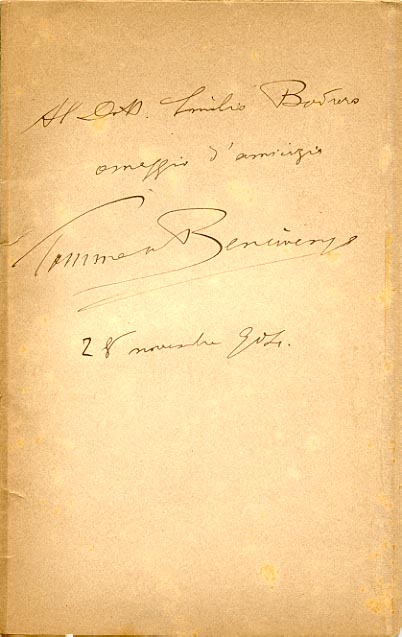 Al Dott. Emilio Bodrero
omaggio d'amicizia
Tommaso Bencivenga
28 novembre 904.